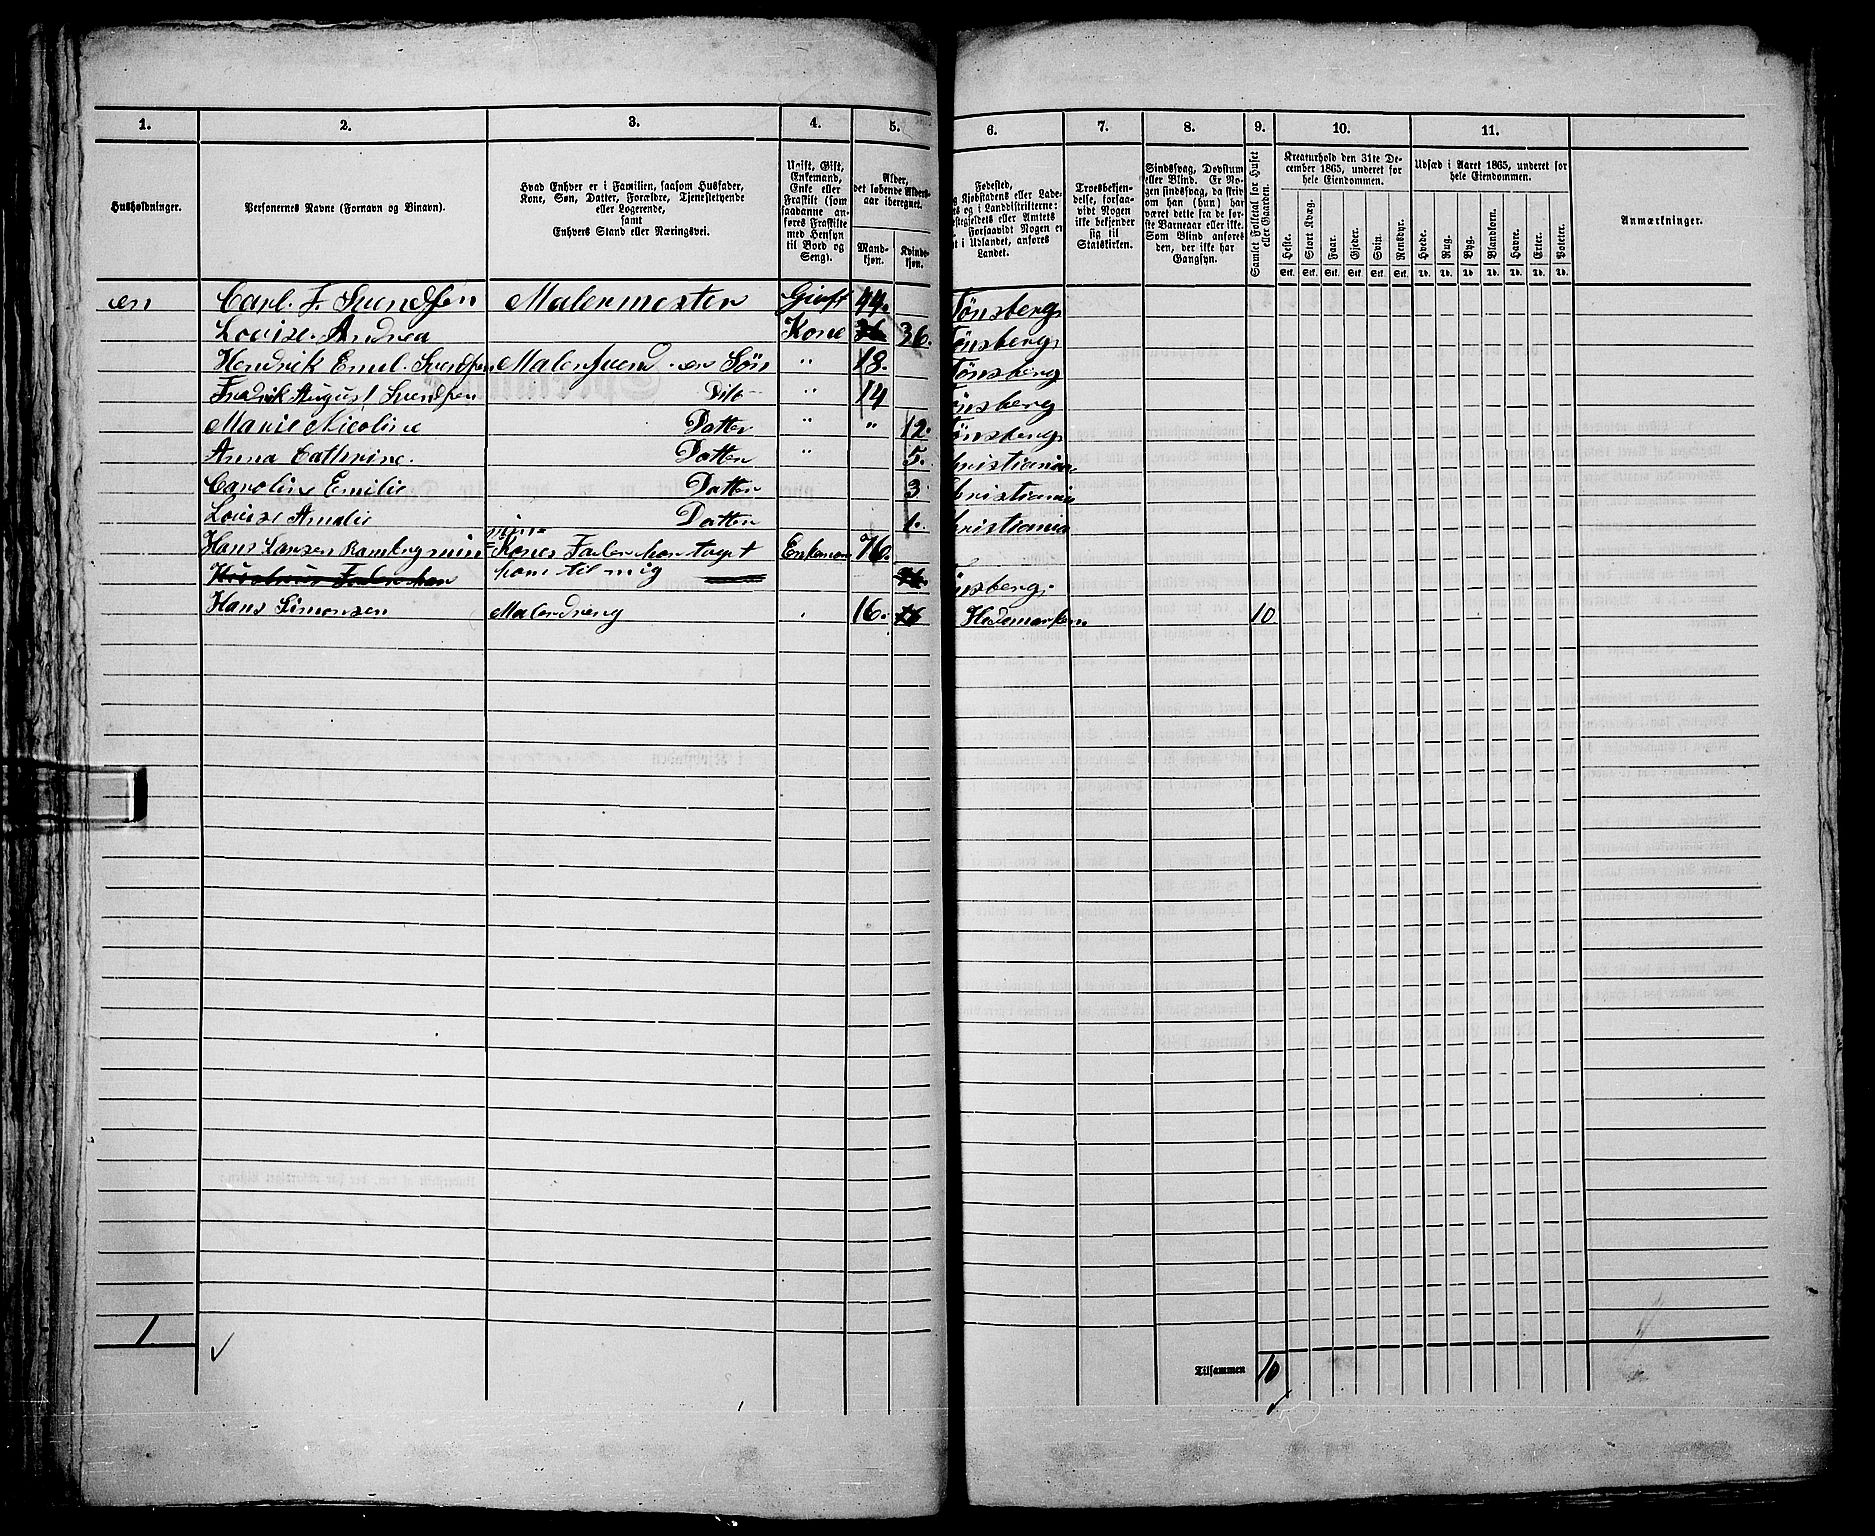 1. 2. 3. 4. 5. 6. 7. 8. 9. 10. 11.
Husholdninger.
Personernes Navne (Fornavn og Binavn).
Hvad Enhver er i Familien, saasom Husfader,
Kone, Søn, Datter, Forældre, Tjenestetyende
eller Logerende,
samt
Enhvers Stand eller Næringsvei.
Ugift, Gift,
Enkemand,
Enke eller
Fraskilt (som
saadanne an-
føres Fraskilte
med Hensyn
til Bord og
Seng).
Alder,
det løbende Alders-
aar iberegnet.
Mand-
kjøn.
Kvinde-
kjøn.
Fødested,
g Kjøbstadens eller Lade-
ts og i Landdistrikterne:
stegjeldets eller Amtets
Forsaavidt Nogen er
t i Udlandet, anføres
Landet.
Troesbekjen-
delse, forsaa-
vidt Nogen
ikke bekjender
sig til
Statskirken.
Sindssvag, Døvstum
eller Blind. Er No-
gen sindssvag, da skriv
om han (hun) har
været dette fra de før-
ste Barneaar eller ikke.
Som Blind anføres
den, der ikke har
Gangsyn.
Samlet Folketal for Huset
eller Gaarden.
Kreaturhold den 31te De-
cember 1865, underet for
hele Eiendommen.
Heste. Stort Kvæg. Faar. Gjeder. Svin. Rensdyr.
Stk. Stk. Stk. Stk. Stk. Stk.
Udsæd i Aaret 1865, underet for
hele Eiendommen.
Hvede. Rug. Byg. Blandkorn. Havre. Erter. Poteter.
Td. Td. Td. Td. Td. Td. Td.
Anmærkninger.
en Carl. F. Svendsen Malermester Givt 44. Tönsberg
Lovise. Andrea Kone 36. Tönsberg
Hendrik Emil. Svendsen Malersvend en Sön " 18. Tönsberg
Fredrik August Svendsen Dito " 14 önsberg
Marie Nicoline Datter " " 12. önsberg
Anna Cathrine. Datter " 5. hristiania
Caroline Emilie Datter 3 hristiania
Lovise Amalie Datter 1. hristiania
Hans Larsen Ramberg min Kones Fader har taget Enkeman 76.
ham til mig önsberg.
Hans Simonsen Malerdreng 16. Hedemarken 10
1
Tilsammen 10